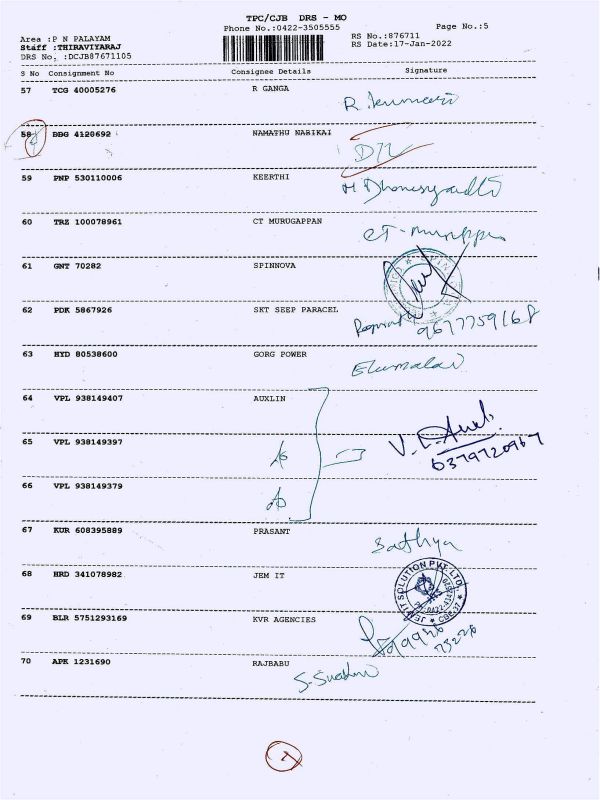 TPC/CJB DRS - MO
Phone No.:0422-3505555
Page No.:5
Area :P N PALAYAM
RS No.:876711
Staff :THIRAVIYARAJ
RS Date:17-Jan-2022
DRS No. :DCJB87671105
S No Consignment No Consignee Details Signature
57 TCG 40005276 R GANGA
58 BBG 4120692 NAMATHU NABIKAI
59 PNP 530110006 KEERTHI
60 TRZ 100078961 CT MURUGAPPAN
61 GNT 70282 SPINNOVA
62 PDK 5867926 SKT SEEP PARACEL
9677759168
63 HYD 80538600 GORG POWER
Elumalai
64 VPL 938149407 AUXLIN
65 VPL 938149397
6379720967
66 VPL 938149379
67 KUR 608395889 PRASANT
Sathya
68 HRD 341078982 JEM IT
69 BLR 5751293169 KVR AGENCIES
70 APK 1231690 RAJBABU